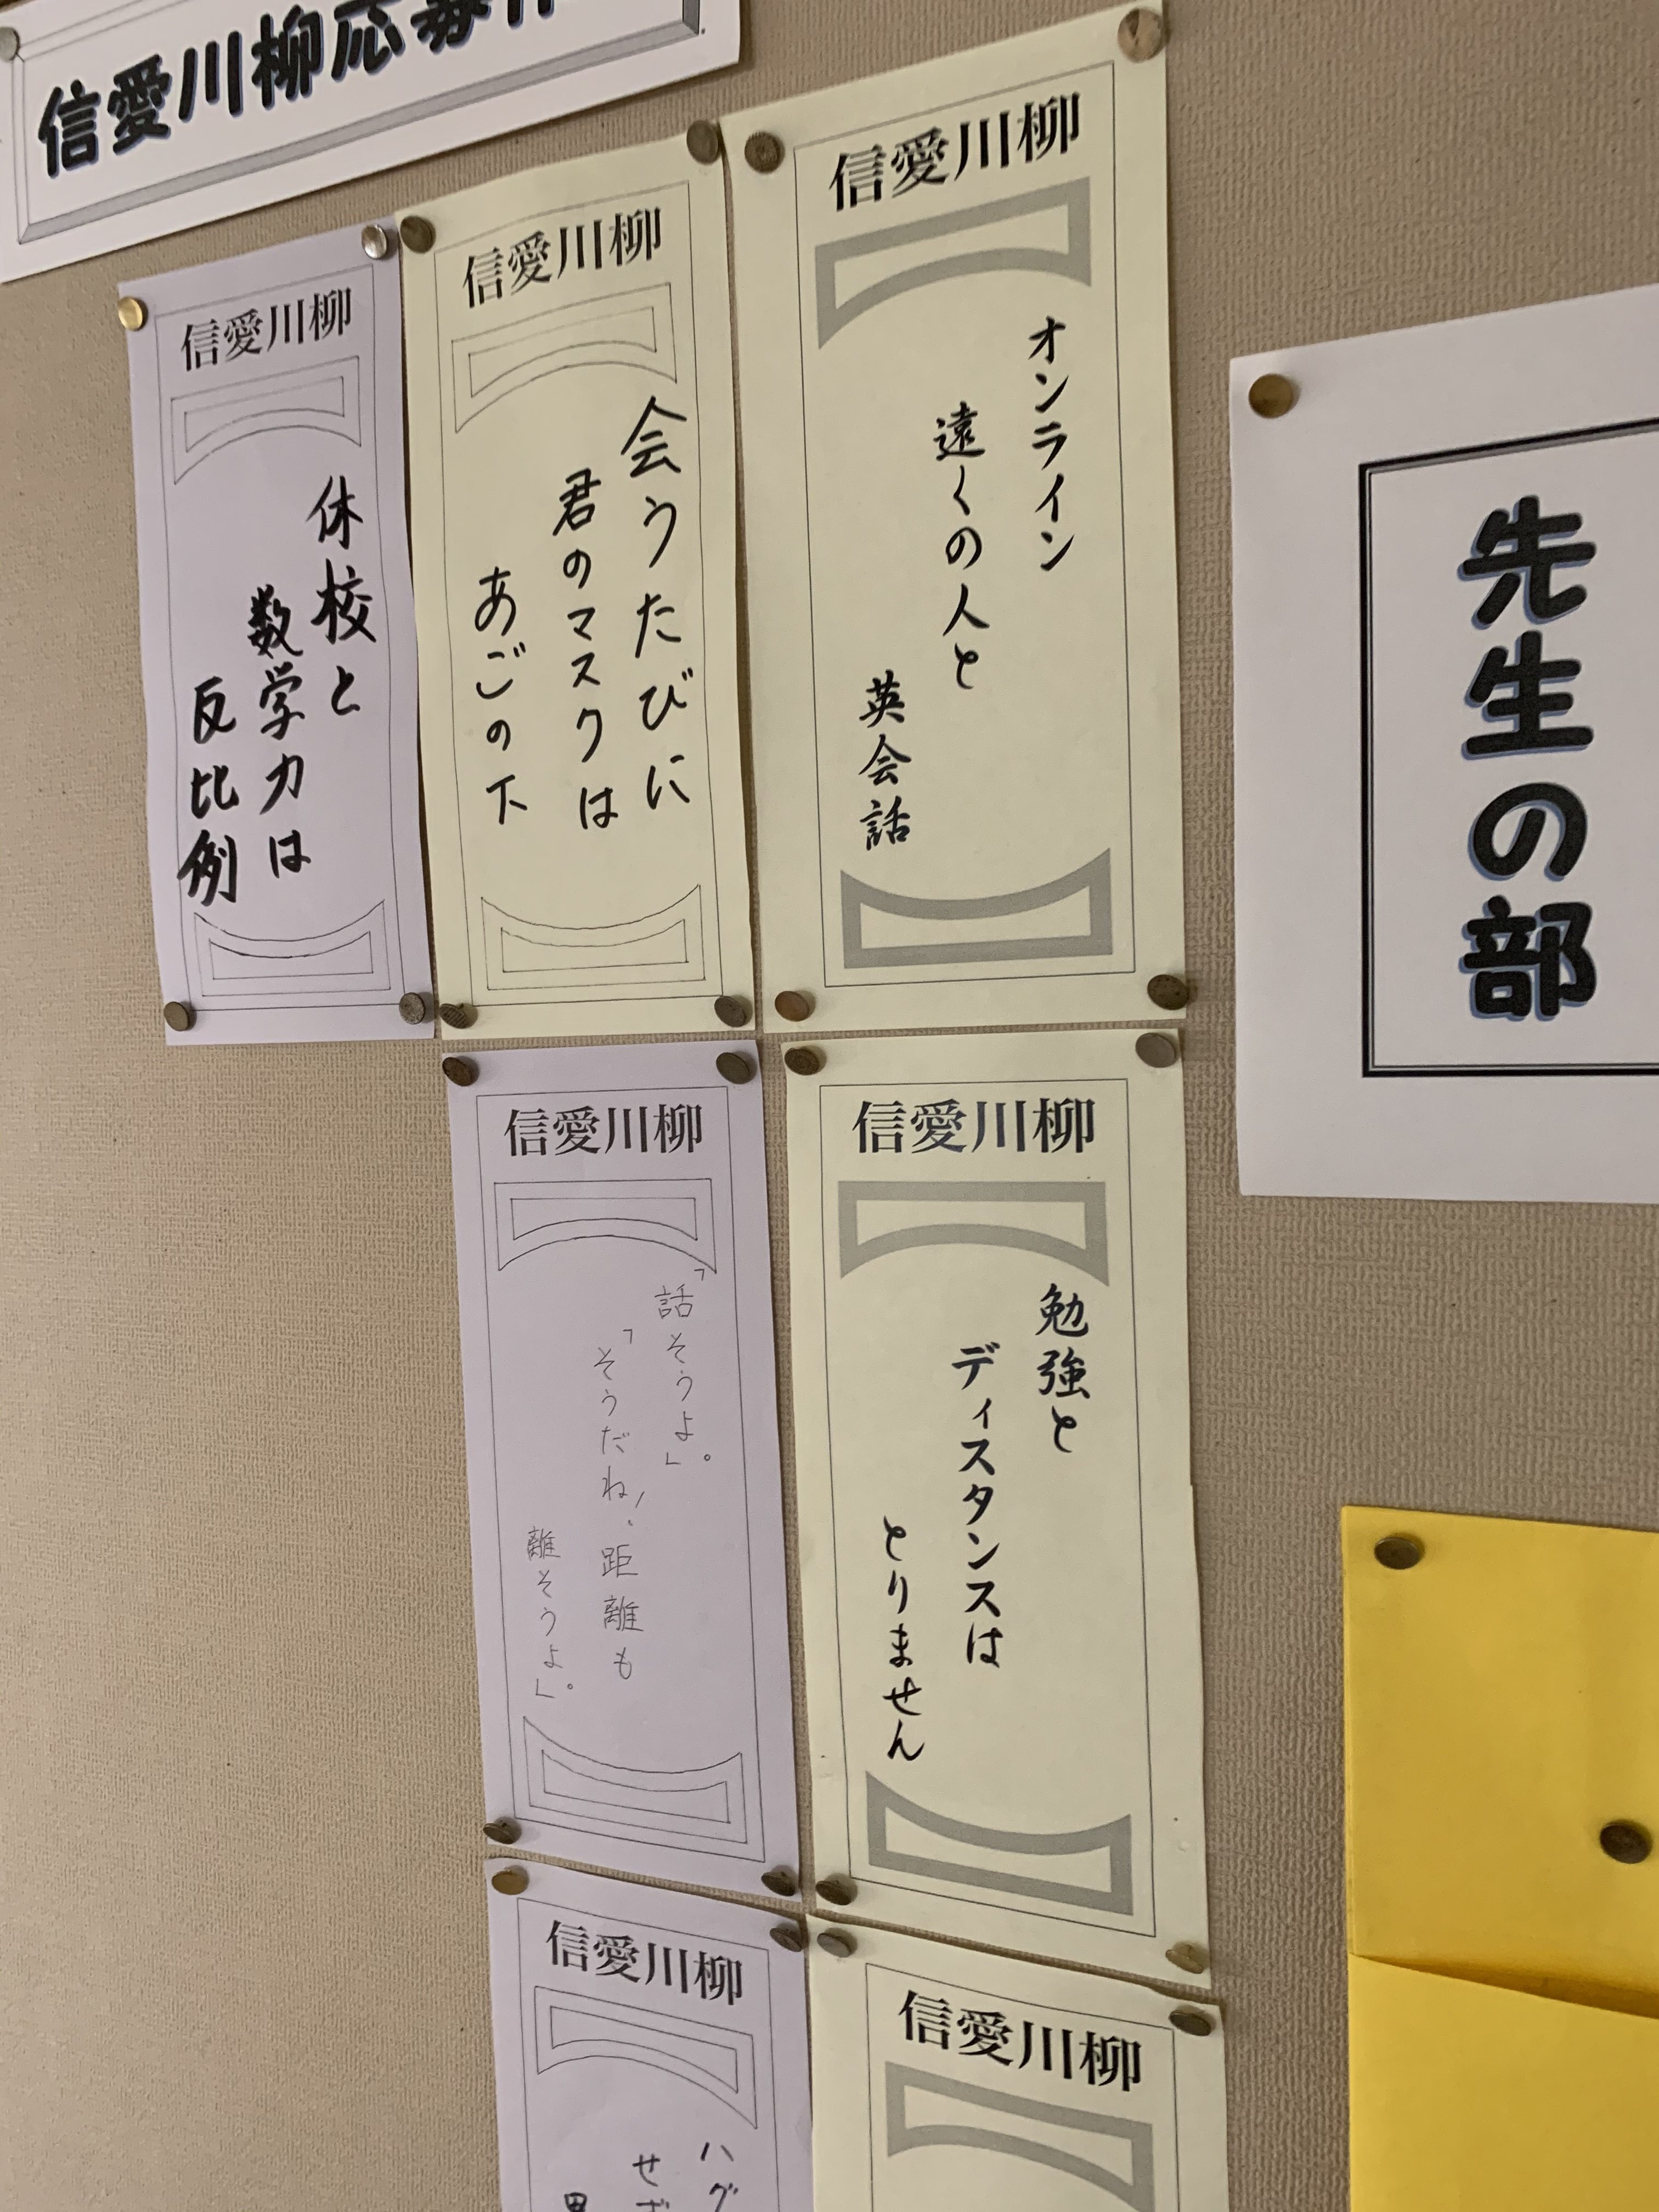 信愛川柳応募作
先生の部
信愛川柳
オンライン
遠くの人と
英会話
信愛川柳
会うたびに
君のマスクは
あごの下
信愛川柳
休校と
数学力は
反比例
信愛川柳
勉強と
ディスタンスは
とりません
信愛川柳
「話そうよ。」
「そうだね!距離も
離そうよ。」
信愛川柳
信愛川柳
ハグ
せず